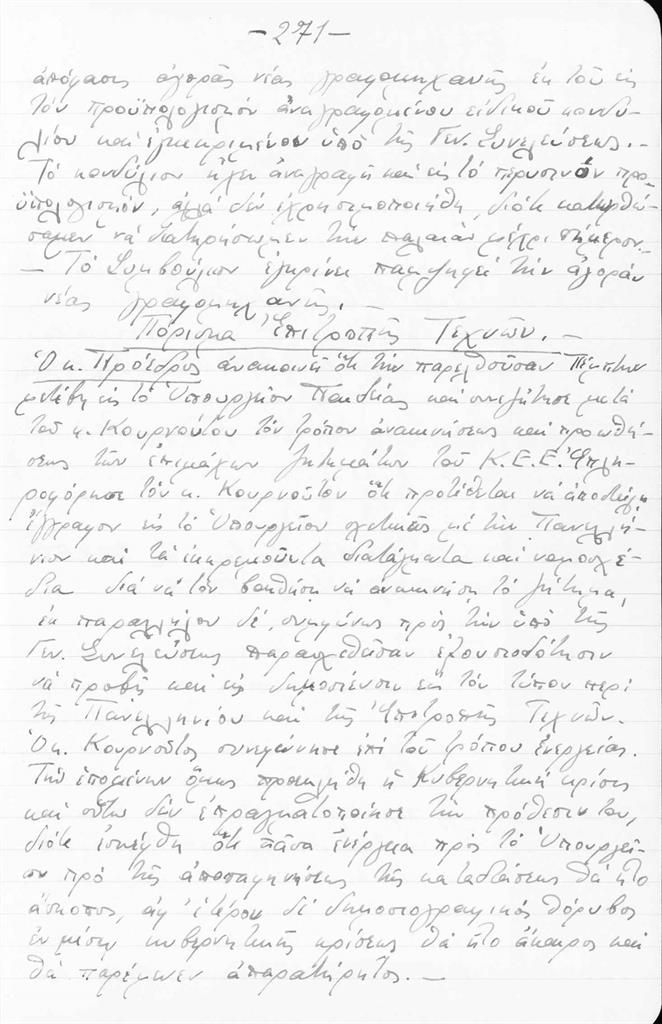 -271-
ἀπόφασις ἀγορᾶς νέας γραφομηχανῆς ἐκ τοῦ εἰς
τὸν προϋπολογισμόν ἀναγραφομένου εἰδικοῦ κονδυ-
λίου καὶ ἐγκεκριμένου ὑπό τῆς Γεν. Συνελεύσεως.-
Τό κονδύλιον εἶχεν ἀναγραφῆ καὶ εἰς τό περυσινόν προ-
ϋπολογισμόν, ἀλλά δέν ἐχρησιμοποιήθη, διότι κατωρθώ-
σαμεν νά διατηρήσωμεν τήν παλαιάν μέχρι σήμερον.-
- Τό Συμβούλιον ἐγκρίνει παμψηφεί τήν ἀγοράν
νέας γραφομηχανῆς.-
Πόρισμα Ἐπιτροπῆς Τεχνῶν.-
Ὁ κ. Πρόεδρος ἀνακοινοῖ ὅτι τήν παρελθοῦσαν Πέμπτην
μετέβη εἰς τό Ὑπουργεῖον Παιδείας καὶ συνεζήτησε μετά
τοῦ κ. Κουρνούτου τόν τρόπον ἀνακινήσεως καὶ προωθή-
σεως τῶν ἐπιμάχων ζητημάτων τοῦ Κ.Ε.Ε. Ἐπλη-
ροφόρησε τόν κ. Κουρνοῦτον ὅτι προτίθεται νά ἀποστείλῃ
ἔγγραφον εἰς τό Ὑπουργεῖον σχετικῶς μέ τήν Πανελλή-
νιον καὶ τά ἐκκρεμοῦντα διατάγματα καὶ νομοσχέ-
δια διά νά τόν βοηθήσῃ νά ανακινήσῃ τό ζήτημα,
ἐκ παραλλήλου δέ, συμφώνως πρός τήν ὑπό τῆς
Γεν. Συνελεύσεως παρασχεθεῖσαν ἐξουσιοδότησιν
νά προβῇ καὶ εἰς δημοσίευσιν εἰς τόν τύπον περί
τῆς Πανελληνίου καὶ τῆς Ἐπιτροπῆς Τεχνῶν.
Ὁ κ. Κουρνοῦτος συνεφώνησε ἐπί τοῦ τρόπου ἐνεργείας.
Τήν ἑπομένην ὅμως προεκλήθη ἡ Κυβερνητική κρίσις
καὶ οὕτω δέν ἐπραγματοποίησε τήν πρόθεσίν του,
διότι ἐσκέφθη ὅτι πᾶσα ἐνέργεια πρός τό Ὑπουργεῖ-
ον πρό τῆς ἀποσαφηνήσεως τῆς καταστάσεως θά ἦτο
ἄσκοπος, ἀφ' ἑτέρου δέ δημοσιογραφικός θόρυβος
ἐν μέσῳ κυβερνητικῆς κρίσεως θά ἦτο ἄκαιρος καὶ
θά παρέμενεν ἀπαρατήρητος.-